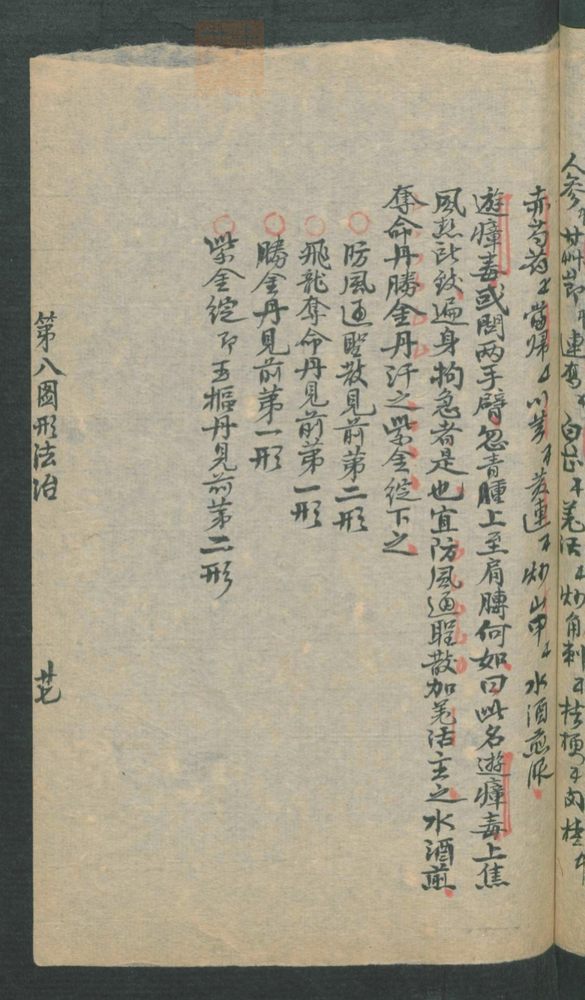 人參 甘艸節 連喬 白芷 羌活 炒角刺 桔梗 肉桂
赤芍药 當歸 川芎 黃連 炒山甲 水酒煎服
遊瘴毒或問两手臂忽青腫上至肩膊何如曰此名遊瘴毒上焦
風热所致遍身拘急者是也宜防風通聖散加羌活主之水酒煎
奪命丹勝金丹汗之紫金綻下之
防風通聖散見前第二形
飛龍奪命丹見前第一形
勝金丹見前第一形
紫金綻即玉樞丹見前第二形
第八圖形法治